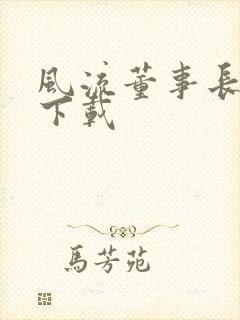 風流董事長
下載
馬芳苑